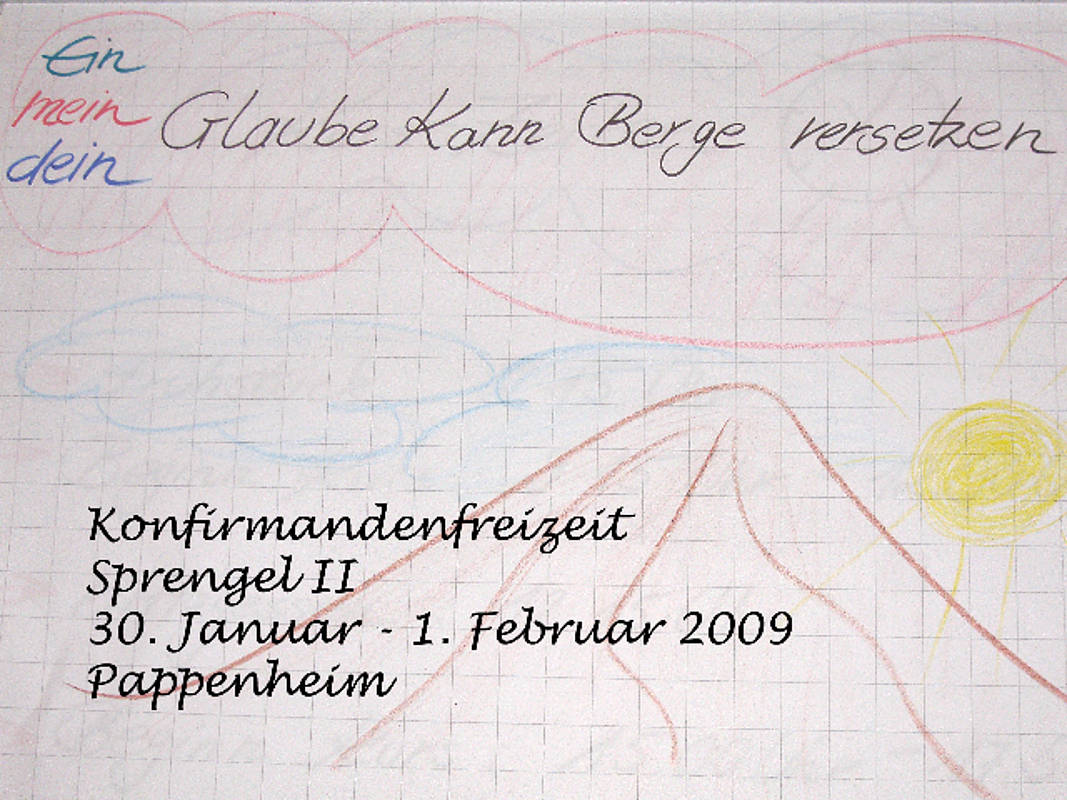 Ein
mein
dein
Glaube Kann Berge versetzen
Konfirmandenfreizeit
Sprengel II
30. Januar - 1. Februar 2009
Pappenheim